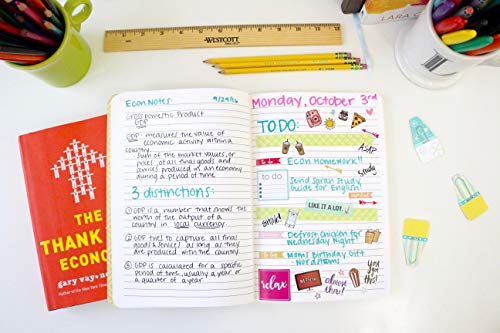 WESTCOTT
LARA C
THE
THANK
ECONO
gary vay
Author of the New York Times
Econ Notes:
9/29/16
Gross Domestic Product
GDP
GDP - measures the value of
economic activity within a
country
- Sum of the market values, or
prices, of all final goods and
services produced in an economy
during a period of time
3 distinctions:
① GDP is a number that shows the
worth of the output of a
country in local currency
② GDP tries to capture all final
goods & services as long as they
are produced with the country
③ GDP is calculated for a specific
period of time, usually a year or
a quarter of a year
Monday, October 3rd
TO DO:
ASAP
Econ Homework!!
Study
to do
Send Sarah Study
Guide for English!
LIKE IT A LOT.
Defrost Chicken for
Wednesday Night
Moms Birthday Gift
- Nordstroms
relax
almost there!
you got this!